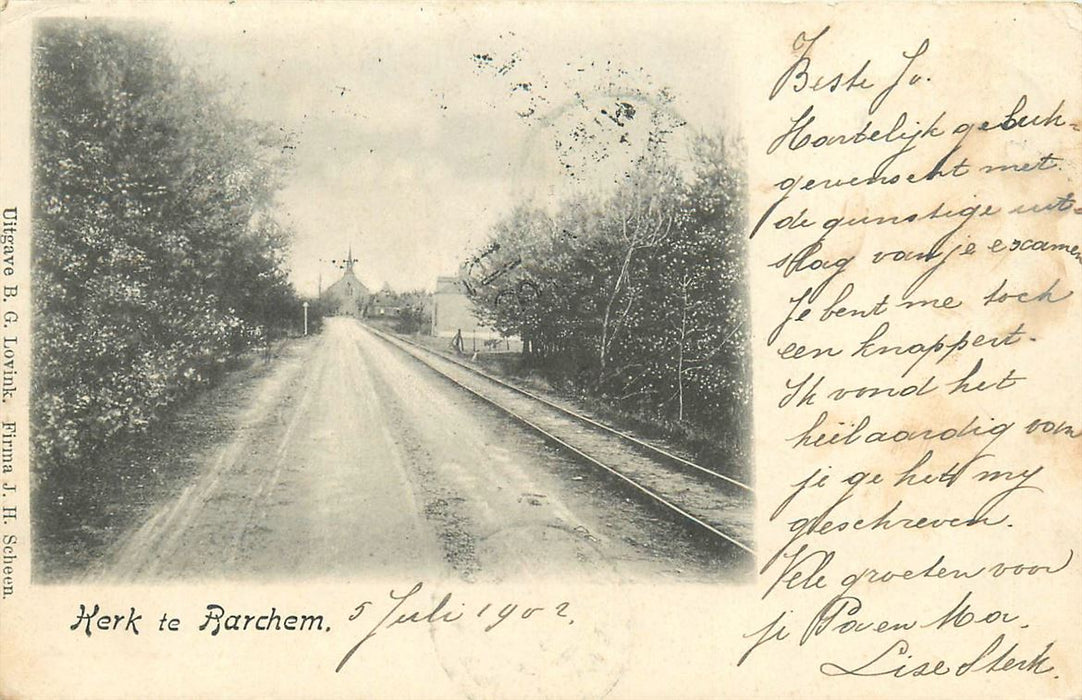 Beste Jo.
Hartelijk geluk-
gewenscht met
de gunstige uit-
slag van je examen
Je bent me toch
een knappert.
Ik vond het
heel aardig van
je ge het my
geschreven.
Vele groeten voor
je Pa en Ma.
Lise Sterk.
Kerk te Barchem. 5 Juli 1902.
Uitgave B. G. Lovink. Firma J. H. Scheen.